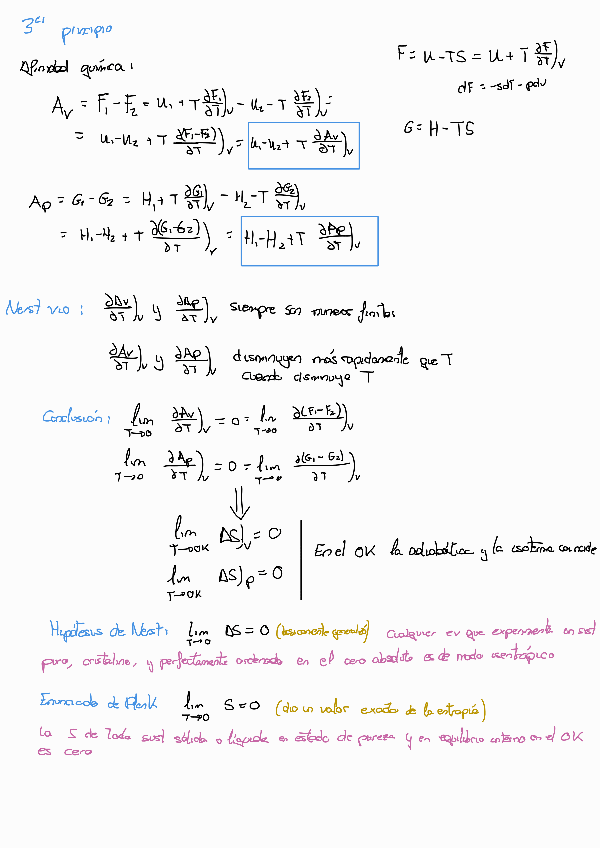 3er principio
F = U - TS = U + T ∂F/∂T)v
dF = -SdT - pdv
G = H - TS
Afinidad química:
Av = F₁ - F₂ = U₁ + T ∂F₁/∂T)v - U₂ - T ∂F₂/∂T)v =
= U₁ - U₂ + T ∂(F₁-F₂)/∂T)v = U₁ - U₂ + T ∂Av/∂T)v
Ap = G₁ - G₂ = H₁ + T ∂G₁/∂T)v - H₂ - T ∂G₂/∂T)v
= H₁ - H₂ + T ∂(G₁-G₂)/∂T)v = H₁ - H₂ + T ∂Ap/∂T)v
Nerst vio: ∂Av/∂T)v y ∂Ap/∂T)v siempre son numeros finitos
∂Av/∂T)v y ∂Ap/∂T)v disminuyen más rapidamente que T
cuando disminuye T
Conclusión: lim T→0 ∂Av/∂T)v = 0 = lim T→0 ∂(F₁-F₂)/∂T)v
lim T→0 ∂Ap/∂T)v = 0 = lim T→0 ∂(G₁-G₂)/∂T)v
⇓
lim T→0K ΔS)v = 0
lim T→0K ΔS)p = 0
En el 0K la adiabática y la isoterma coincide
Hipótesis de Nerst: lim T→0 ΔS = 0 Cualquier ev que experimente un sist
puro, cristalino, y perfectamente ordenado en el cero absoluto es de modo isentrópico
Enunciado de Plank lim T→0 S = 0 (dio un valor exacto de la entropía)
La S de toda sust sólida o líquida en estado de pureza y en equilibrio interno en el 0K
es cero